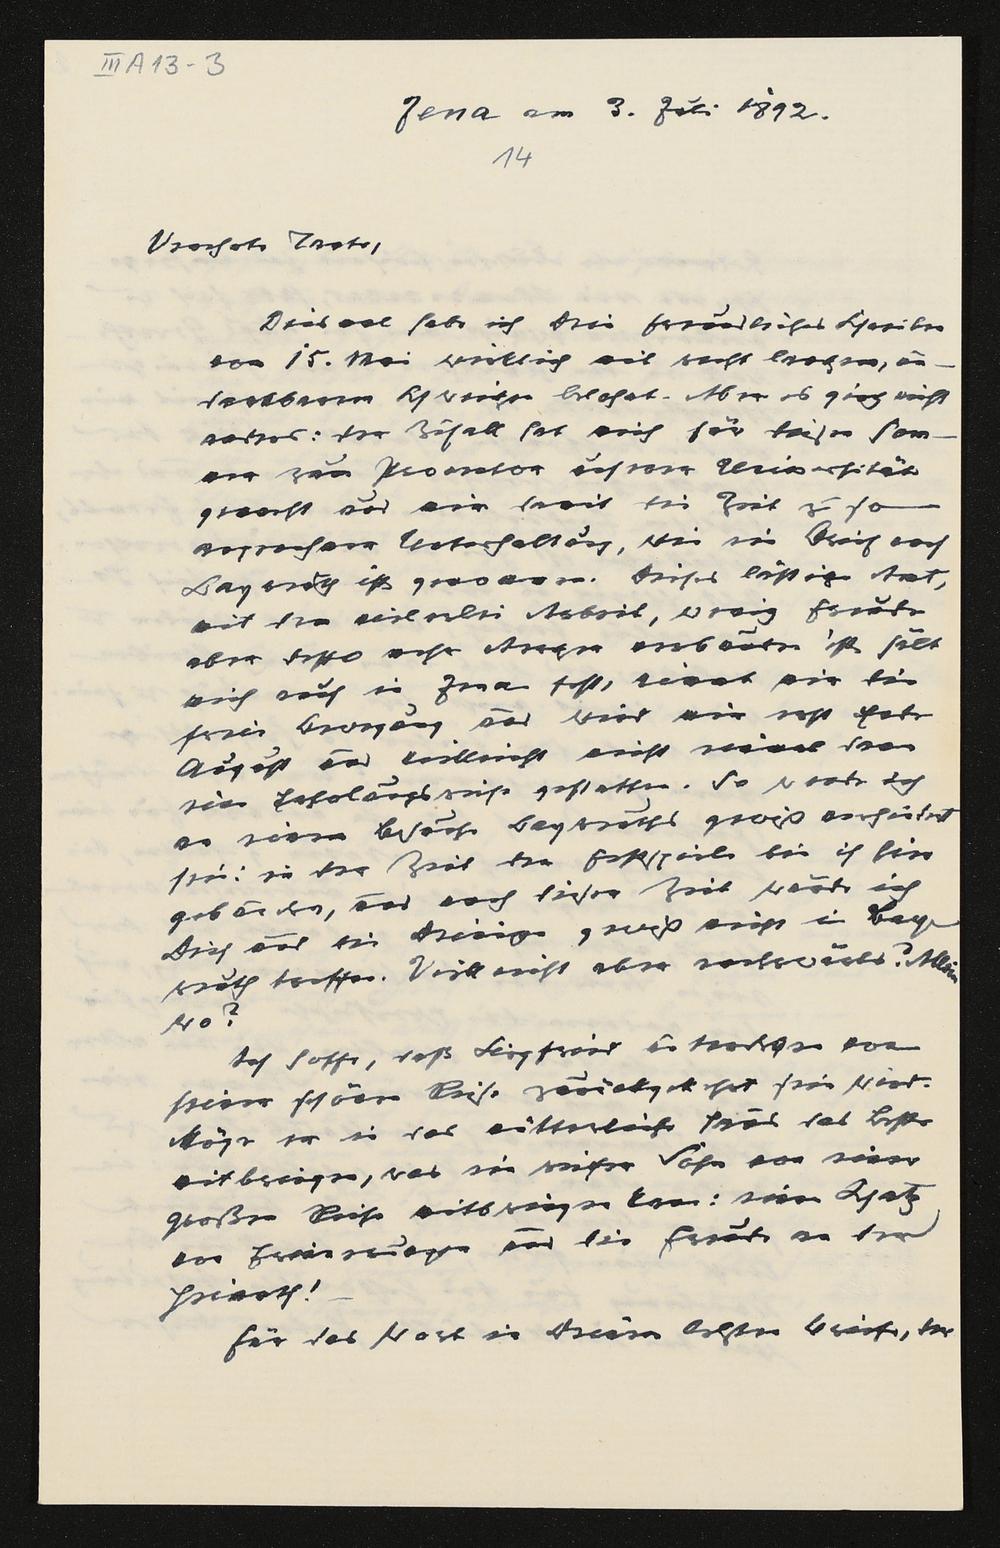 III A 13-3
Jena am 3. Juli 1892.
14
Verehrte Tante,
Diesmal habe ich Dein freundliches Schreiben
vom 15. Mai wirklich mit recht langem, un-
dankbarem Schweigen belohnt. Aber es ging nicht
anders: der Zufall hat mich für diesen Som-
mer zum Prorector unserer Universität
gemacht und mir damit die Zeit zu so
angenehmer Unterhaltung, wie ein Brief nach
Bayreuth ist genommen. Dieses lästige Amt,
mit dem vielerlei Arbeit, wenig Freude
aber desto mehr Aerger verbunden ist, hält
mich auch in Jena fest, nimmt mir die
freie Bewegung und wird mir erst Ende
August und vielleicht nicht einmal dann
eine Erholungsreise gestatten. So werde ich
an einem Besuche Bayreuths gewiß verhindert
sein: in der Zeit der Festspiele bin ich hier
gebunden, und nach dieser Zeit würde ich
Dich und die Deinigen gewiß nicht in Bay-
reuth treffen. Vielleicht aber anderswärts? Allein
wo?
Ich hoffe, daß Siegfried unterdessen von
seiner schönen Reise zurückgekehrt sein wird.
Möge er in das mütterliche Haus das Beste
mitbringen, was ein reicher Sohn von einer
großen Reise mitbringen kann: einen Schatz
von Erinnerungen und die Freude an der
Heimath!
Für das Wort in Deinem letzten Briefe, der